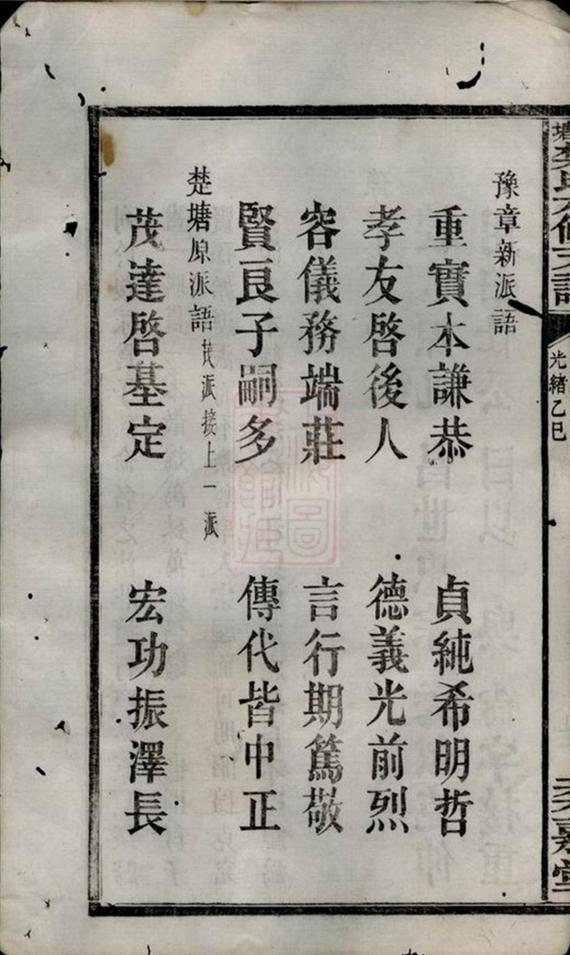 光緒乙巳
豫章新派語
重實本謙恭 貞純希明哲
孝友啓後人 德義光前烈
容儀務端莊 言行期篤敬
賢良子嗣多 傳代皆中正
楚塘原派語 派接上一派
茂達啓基定 宏功振澤長